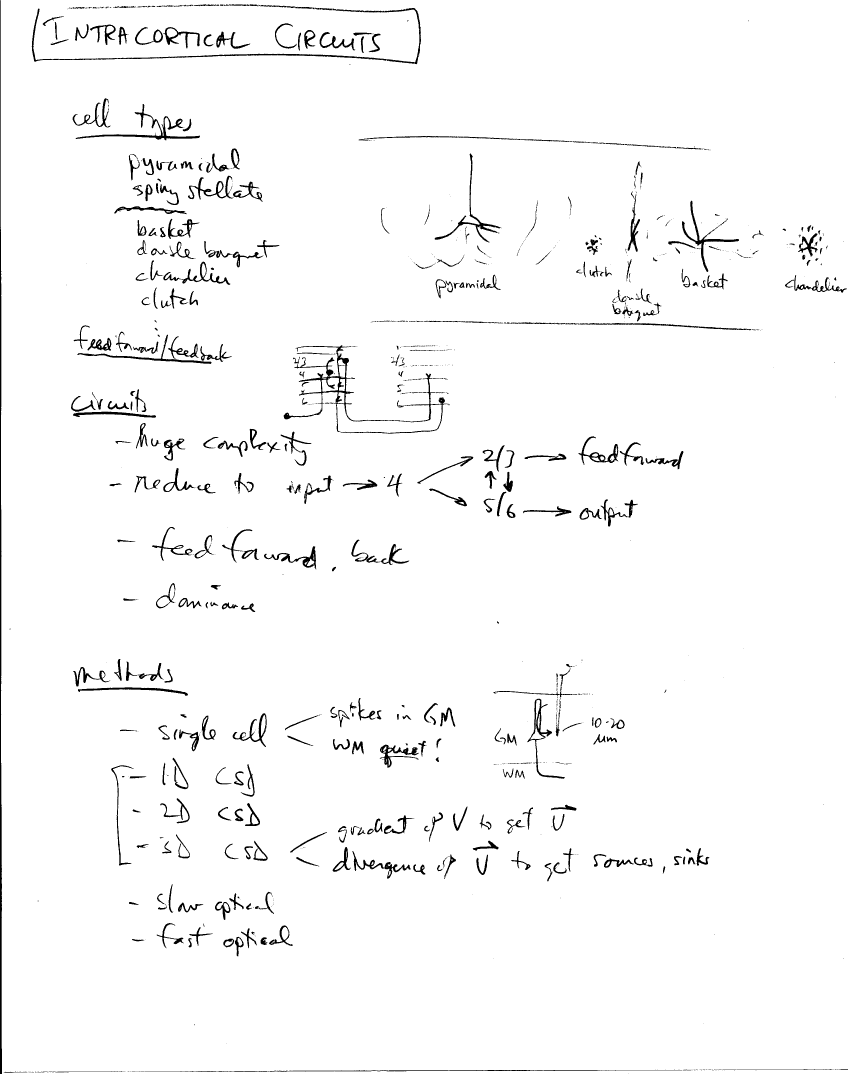 INTRACORTICAL CIRCUITS
cell types
pyramidal
spiny stellate
basket
double bouquet
chandelier
clutch
pyramidal
clutch
double
bouquet
basket
chandelier
feedforward/feedback
2/3
4
5
6
2/3
4
5
6
circuits
- huge complexity
- reduce to input → 4
2/3 → feedforward
↑ ↓
5/6 → output
- feedforward, back
- dominance
methods
- single cell
spikes in GM
WM quiet!
GM
WM
10-20
μm
- 1D CSD
- 2D CSD
- 3D CSD
gradient of V to get U
divergence of U to get sources, sinks
- slow optical
- fast optical